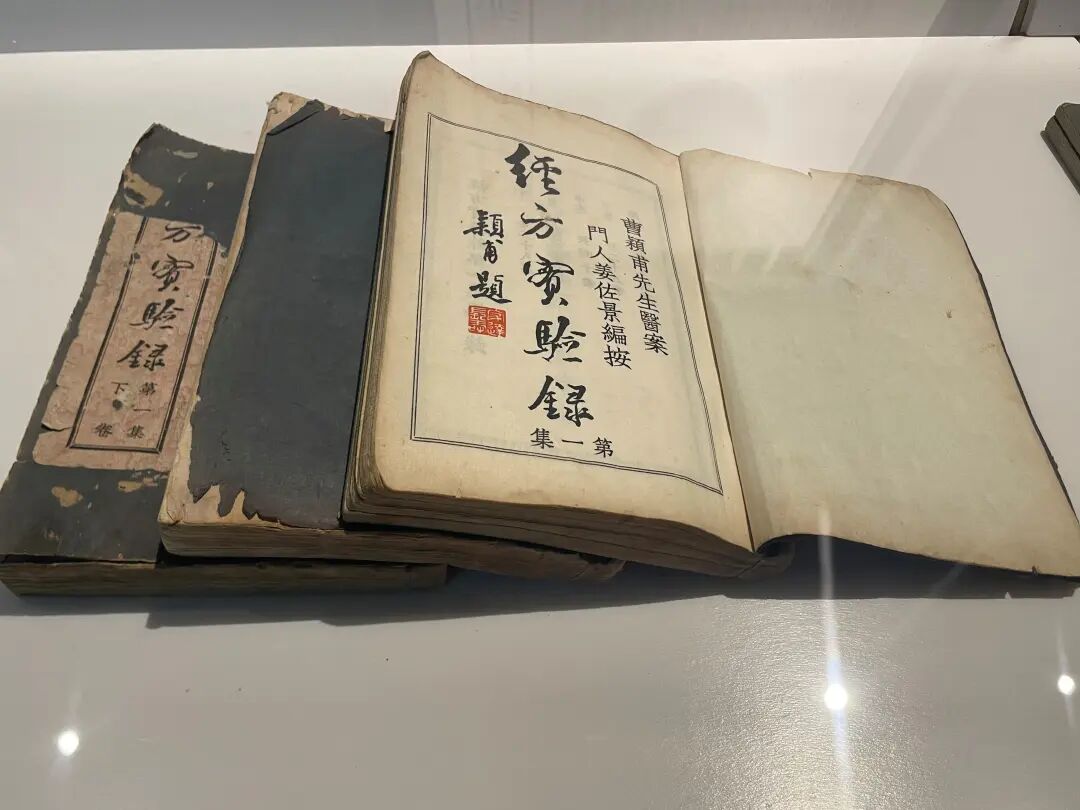 曹穎甫先生醫案
門人姜佐景編按
經方實驗録
第一集
穎甫題
方實驗録
第一集
下卷